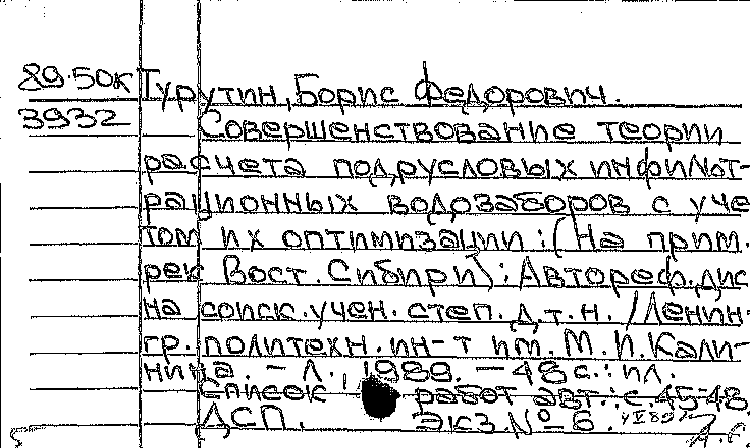 89-50к Турутин, Борис Федорович.
3932 Совершенствование теории
расчета подрусловых инфильт-
рационных водозаборов с уче
том их оптимизации: (На прим.
рек Вост. Сибири): Автореф. дис
на соиск. учен. степ. д.т.н. /Ленин-
гр. политехн. ин-т им. М.И. Кали-
нина. - Л., 1989. - 48 с.: ил.
Список работ авт.: с.45-48
ДСП. Экз. № 6.